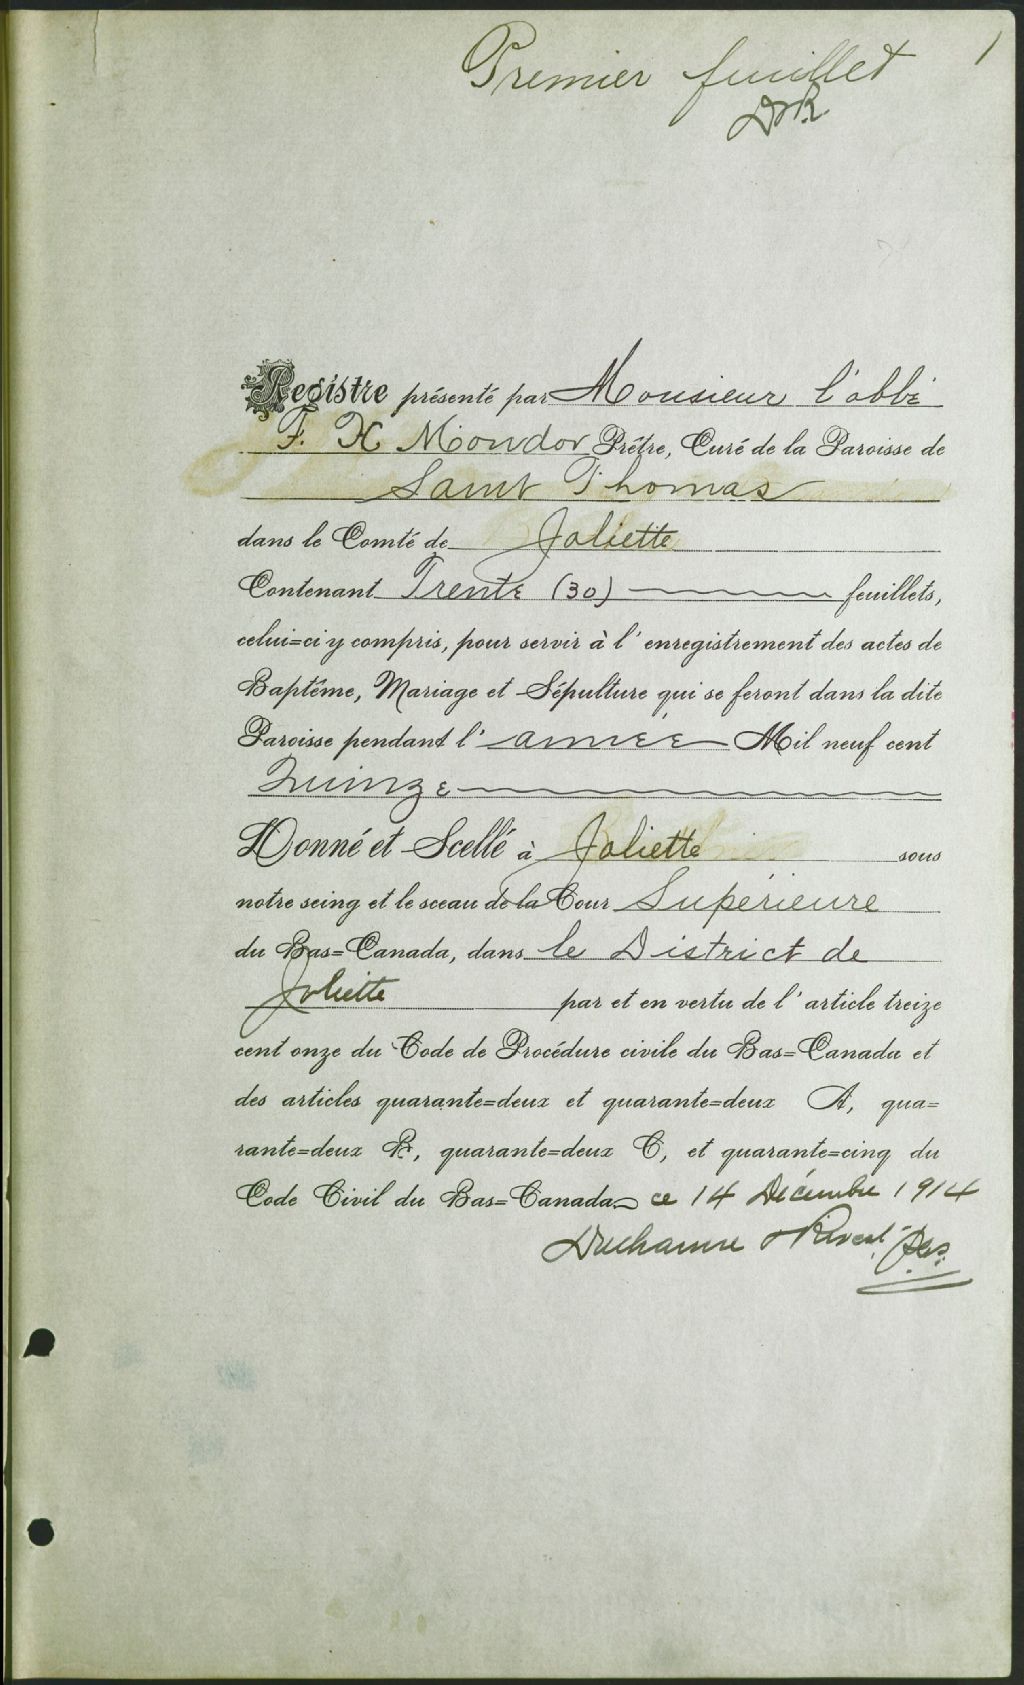 Premier feuillet 1
D & R.
Registre présenté par Monsieur l'abbé
F. X Mondor Prêtre, Curé de la Paroisse de
Saint Thomas
dans le Comté de Joliette
Contenant Trente (30) feuillets,
celui=ci y compris, pour servir à l'enregistrement des actes de
Baptême, Mariage et Sépulture qui se feront dans la dite
Paroisse pendant l'année Mil neuf cent
Quinze
Donné et Scellé à Joliette sous
notre seing et le sceau de la Cour Supérieure
du Bas=Canada, dans le District de
Joliette par et en vertu de l'article treize
cent onze du Code de Procédure civile du Bas=Canada et
des articles quarante=deux et quarante=deux A, qua=
rante=deux B, quarante=deux C, et quarante=cinq du
Code Civil du Bas=Canada ce 14 Décembre 1914
Ducharme & Rivest